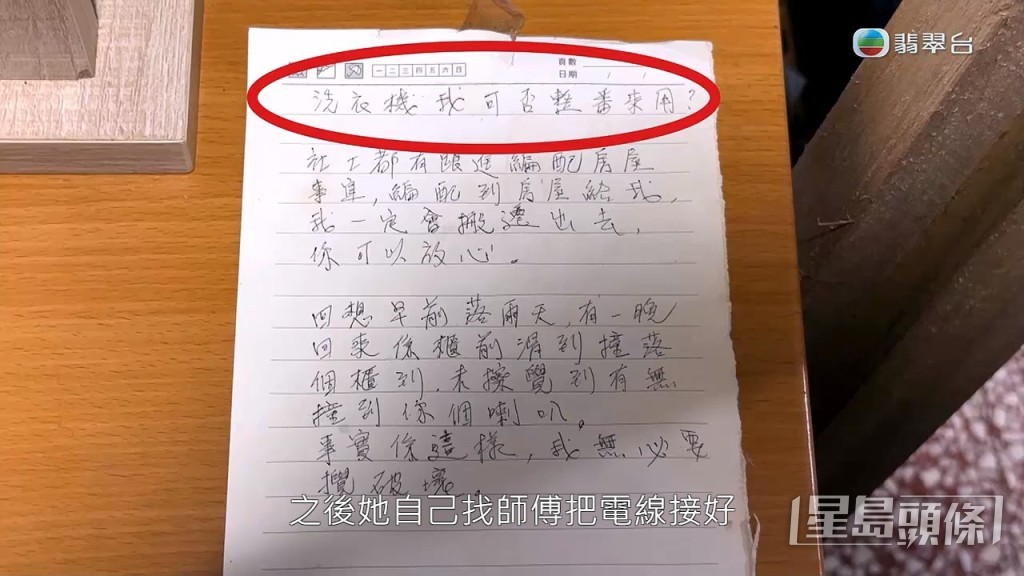 翡翠台
一二三四五六日
頁數
日期 / /
洗衣機我可否整番來用?
社工都有跟進編配房屋
事宜,編配到房屋給我,
我一定會搬遷出去,
你可以放心。
回想早前落雨天,有一晚
回來係櫃前滑到撞落
個櫃到,未擦覺到有無
撞到你個喇叭。
事實係這樣,我無必要
攪破壞
之後她自己找師傅把電線接好
星島頭條